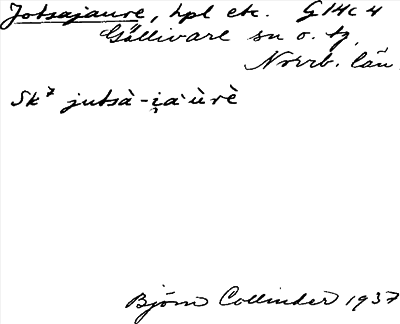 Jotsajaure, hpl etc. G14c4
Gällivare sn o. tg,
Norrb. län.
Sk⁷ jutsà-i̯a·ùrè
Björn Collinder 1937